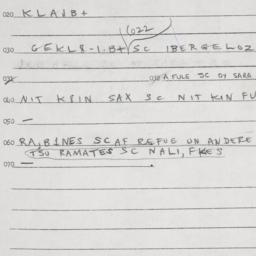 020 KLAIB+
1022
030 GEKL8-1.B+ SC IBERGELOZ
032 030 A FULE SC OY SARG
040 NIT K8IN SAX SC NIT KIN FU
050 —
060 RA, BINES SC AF REFUE UN ANDERE
TSU RAMATES SC NALI, FKES
070 — .